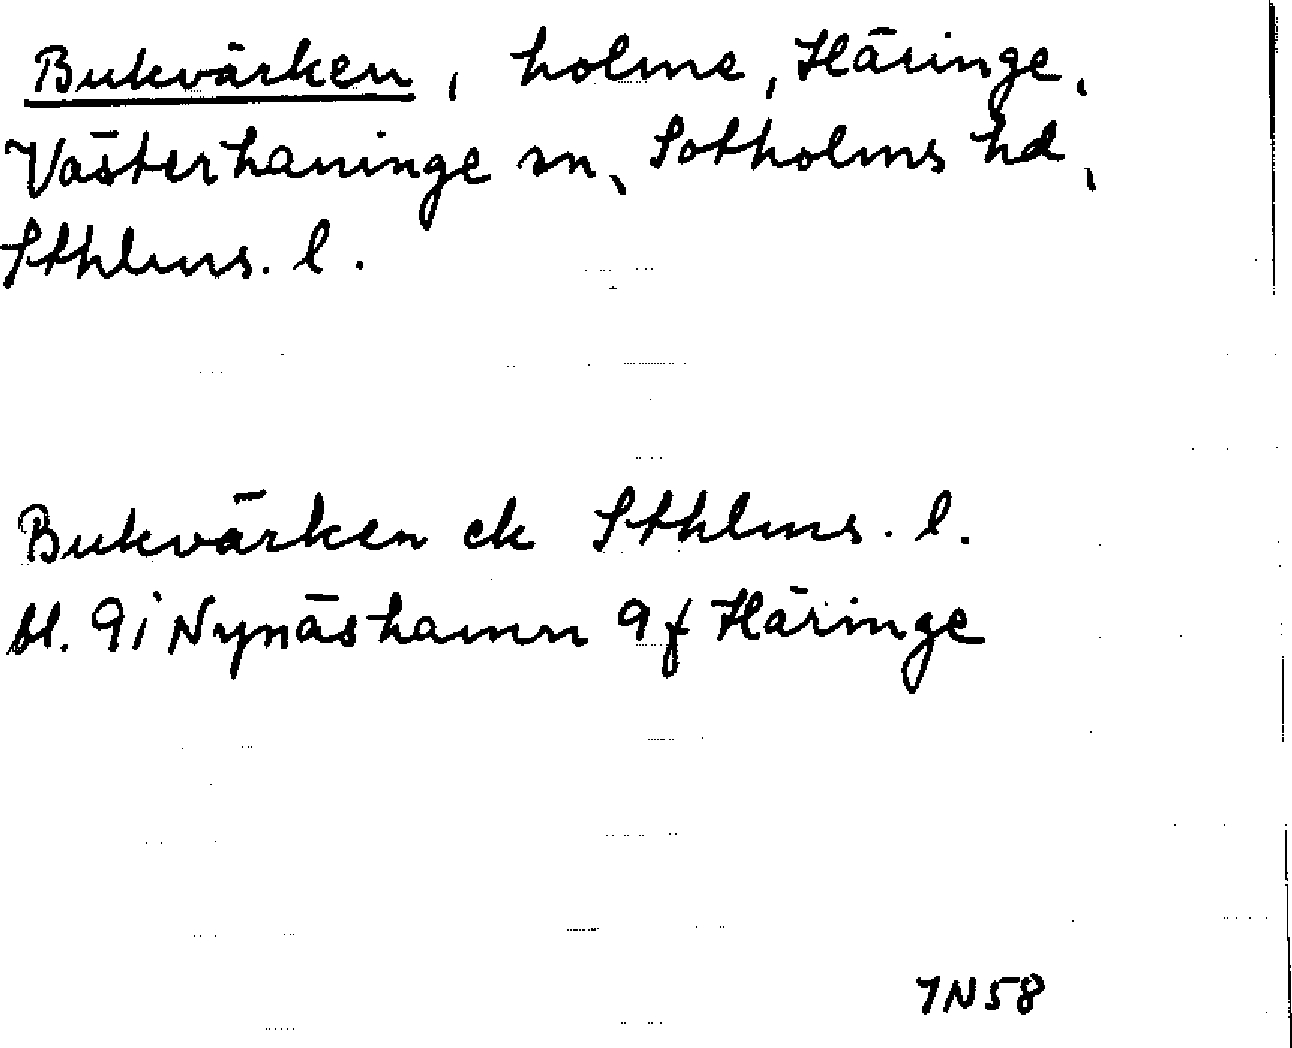 Bukvärken, holme, Häringe,
Västerhaninge sn, Sotholms hd,
Sthlms. l.
Bukvärken ek Sthlms. l.
bl. 9i Nynäshamn 9f Häringe
7N58